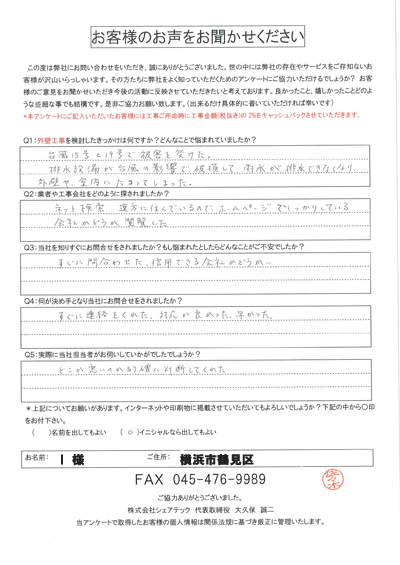 お客様のお声をお聞かせください
この度は弊社にお問い合わせをいただき、誠にありがとうございました。世の中には弊社の存在やサービスをご存知ないお
客様が沢山いらっしゃいます。その方たちに弊社をよく知っていただくためのアンケートにご協力いただけるでしょうか？ お客
様のご意見をお聞かせいただき今後の活動に反映させていただきたいと考えております。良かったこと、嬉しかったことどのよ
うな些細な事でも結構です。是非ご協力お願い致します。（出来るだけ具体的に書いていただければ幸いです）
*本アンケートにご記入いただいたお客様には工事ご用命時に工事金額(税抜き)の 2%をキャッシュバックさせていただきます。
Q1:外壁工事を検討したきっかけは何ですか？どんなことで悩まれていましたか？
台風15号と19号で被害を受けた。
排水設備が台風の影響で破損して雨水が排水できなくなり、
外壁や、室内にたまってしまった。
Q2:業者や工事会社をどのように探されましたか？
ネット検索 遠方に住んでいるので、ホームページでしっかりしている
会社かどうか、閲覧した
Q3:当社を知りすぐにお問合せをされましたか？もし悩まれたとしたらどんなことがご不安でしたか？
すぐに問合わせた、信用できる会社かどうか…
Q4:何が決め手となり当社にお問合せをされましたか？
すぐに連絡をくれた。対応が良かった、早かった。
Q5:実際に当社担当者がお伺いしていかがでしたでしょうか？
どこが悪いのか的確に判断してくれた
＊上記についてお願いがあります。インターネットや印刷物に掲載させていただいてもよろしいでしょうか？下記の中から〇印
をお付下さい。
（ ）名前を出してもよい （○）イニシャルなら出してもよい
お名前： I 様 ご住所： 横浜市鶴見区
FAX 045-476-9989
ご協力ありがとうございました。
株式会社シェアテック 代表取締役 大久保 誠二
当アンケートで取得したお客様の個人情報は関係法規に基づき厳正に管理いたします。